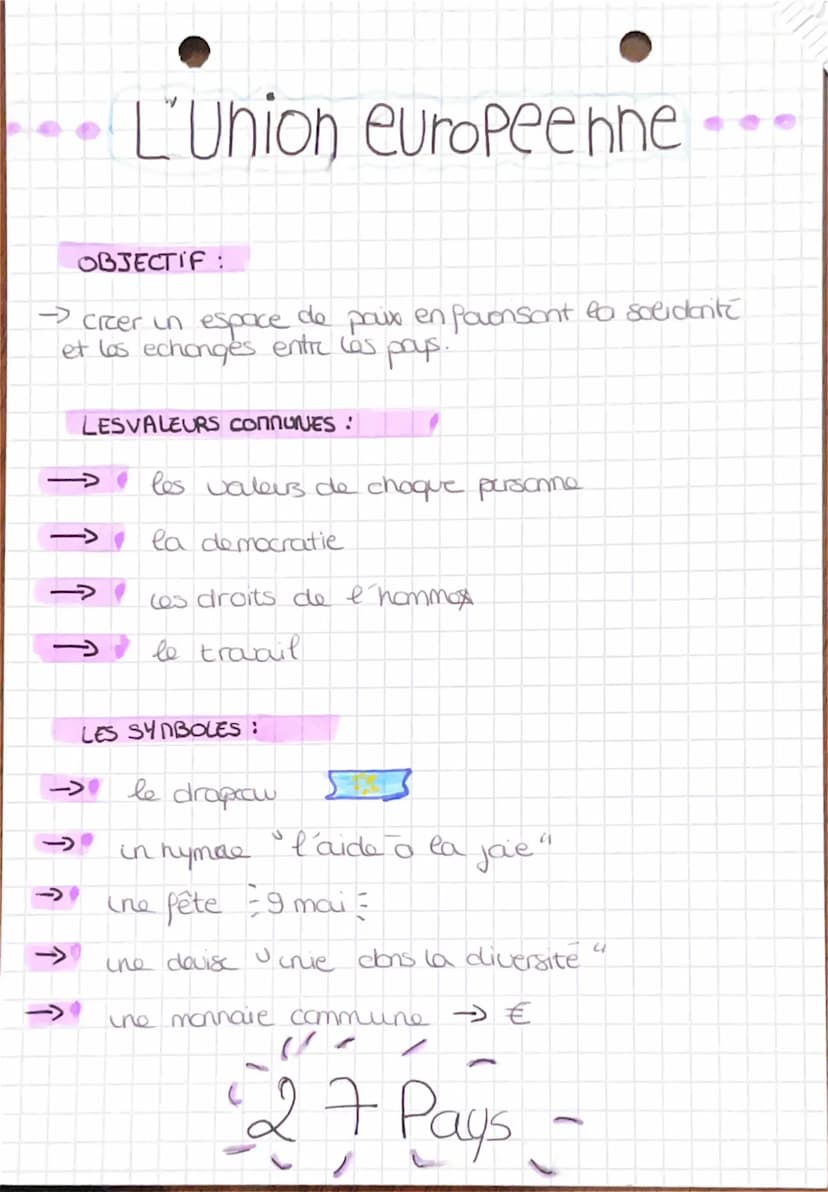 L'Union européenne
OBJECTIF :
→ créer un espace de paix en favorisant la solidarité
et les echanges entre les pays.
LES VALEURS COMMUNES :
→ les valeurs de chaque personne
→ la democratie
→ les droits de l'homme
→ le travail
LES SYMBOLES :
→ le drapeau
→ un hymne "l'aide à la joie"
→ une fête 9 mai
→ une devise "unie dans la diversité"
→ une monnaie commune → €
27 Pays